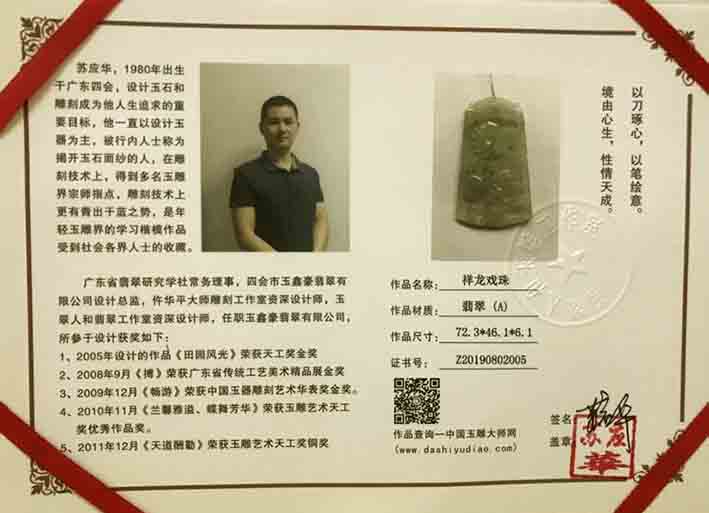 苏应华，1980年出生
于广东四会，设计玉石和
雕刻成为他人生追求的重
要目标，他一直以设计玉
器为主，被行内人士称为
揭开玉石面纱的人，在雕
刻技术上，得到多名玉雕
界宗师指点，雕刻技术上
更有青出于蓝之势，是年
轻玉雕界的学习楷模作品
受到社会各界人士的收藏。
广东省翡翠研究学社常务理事，四会市玉鑫豪翡翠有
限公司设计总监，仵华平大师雕刻工作室资深设计师，玉
翠人和翡翠工作室资深设计师，任职玉鑫豪翡翠有限公司，
所参于设计获奖如下：
1、2005年设计的作品《田园风光》荣获天工奖金奖
2、2008年9月《博》荣获广东省传统工艺美术精品展金奖
3、2009年12月《畅游》荣获中国玉器雕刻艺术华表奖金奖。
4、2010年11月《兰馨雅溢、蝶舞芳华》荣获玉雕艺术天工
奖优秀作品奖。
5、2011年12月《天道酬勤》荣获玉雕艺术天工奖铜奖
以刀琢心，以笔绘意。
境由心生，性情天成。
作品名称：祥龙戏珠
作品材质：翡翠（A）
作品尺寸：72.3*46.1*6.1
证书号：Z20190802005
作品查询—中国玉雕大师网
(www.dashiyudiao.com)
签名
盖章
苏应
華